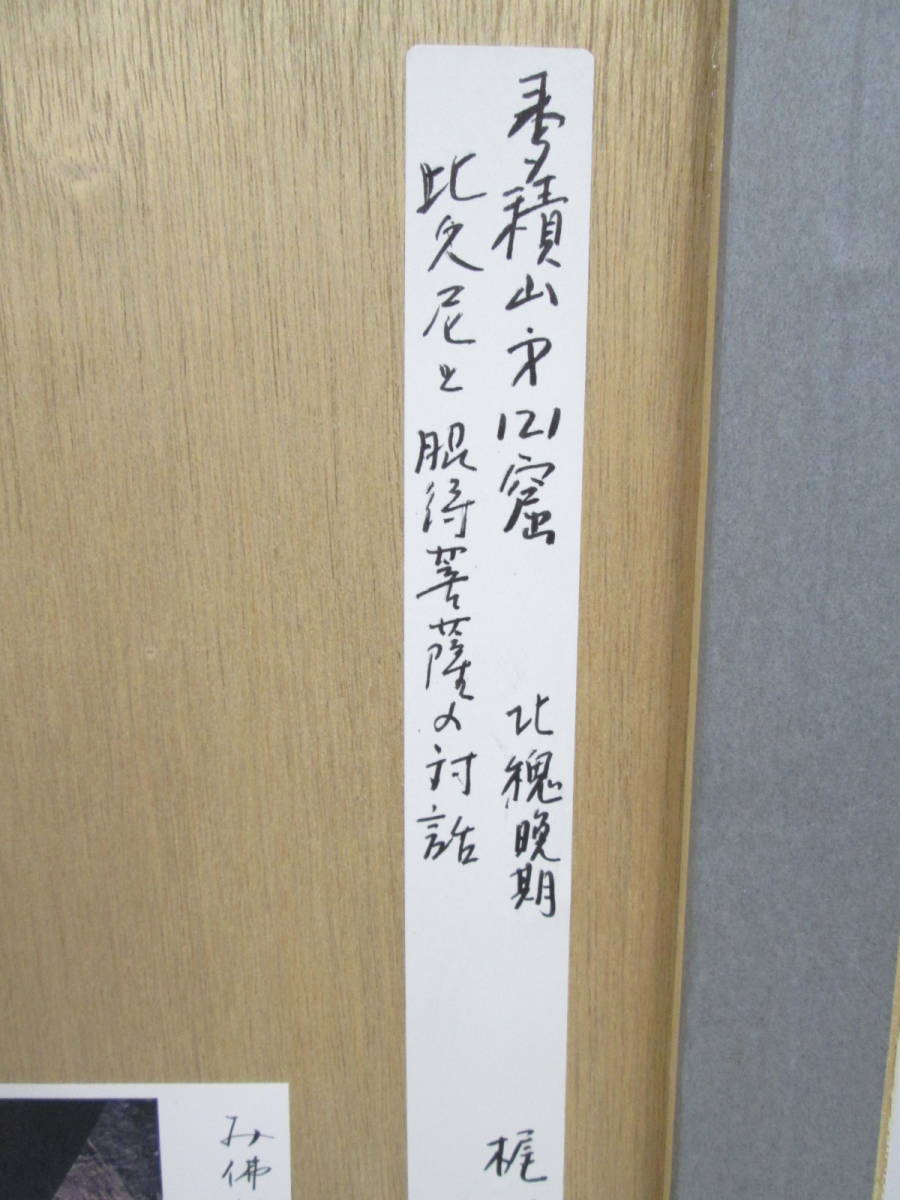 麦積山第121窟　北魏晩期
梶
比丘尼と脇侍菩薩の対話
み佛